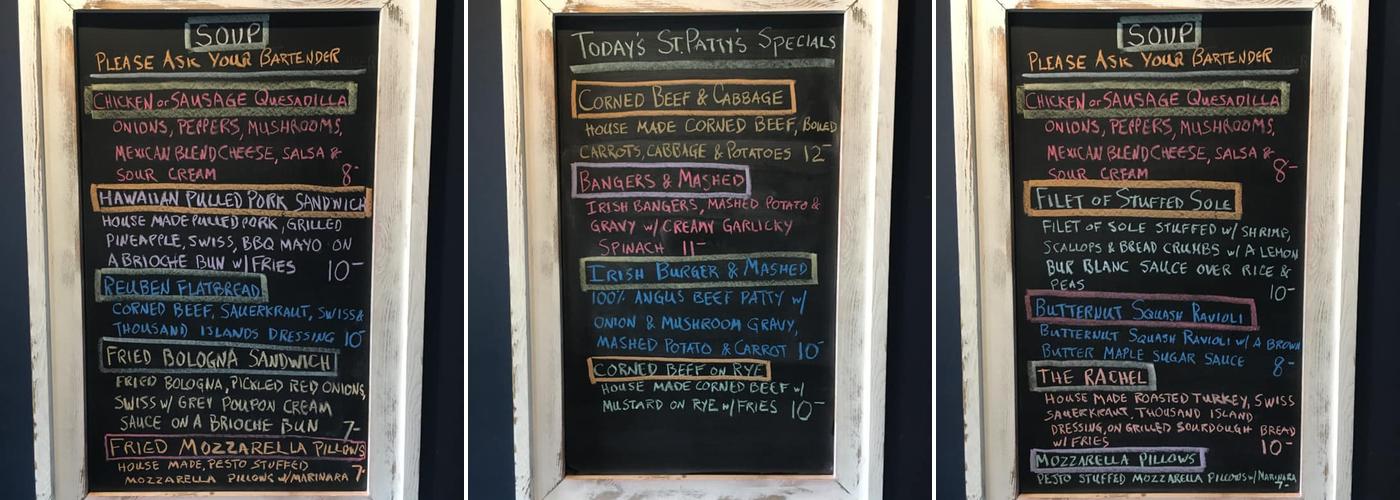 SOUP
PLEASE ASK YOUR BARTENDER
CHICKEN or SAUSAGE QUESADILLA
ONIONS, PEPPERS, MUSHROOMS,
MEXICAN BLEND CHEESE, SALSA &
SOUR CREAM 8-
HAWAIIAN PULLED PORK SANDWICH
HOUSE MADE PULLED PORK, GRILLED
PINEAPPLE, SWISS, BBQ MAYO ON
A BRIOCHE BUN W/ FRIES 10-
REUBEN FLATBREAD
CORNED BEEF, SAUERKRAUT, SWISS &
THOUSAND ISLANDS DRESSING 10-
FRIED BOLOGNA SANDWICH
FRIED BOLOGNA, PICKLED RED ONIONS,
SWISS W/ GREY POUPON CREAM
SAUCE ON A BRIOCHE BUN 7-
FRIED MOZZARELLA PILLOWS
HOUSE MADE, PESTO STUFFED
MOZZARELLA PILLOWS W/ MARINARA 7-
TODAY'S ST. PATTY'S SPECIALS
CORNED BEEF & CABBAGE
HOUSE MADE CORNED BEEF, BOILED
CARROTS, CABBAGE & POTATOES 12-
BANGERS & MASHED
IRISH BANGERS, MASHED POTATO &
GRAVY W/ CREAMY GARLICKY
SPINACH 11-
IRISH BURGER & MASHED
100% ANGUS BEEF PATTY W/
ONION & MUSHROOM GRAVY,
MASHED POTATO & CARROT 10-
CORNED BEEF ON RYE
HOUSE MADE CORNED BEEF W/
MUSTARD ON RYE W/ FRIES 10-
SOUP
PLEASE ASK YOUR BARTENDER
CHICKEN or SAUSAGE QUESADILLA
ONIONS, PEPPERS, MUSHROOMS,
MEXICAN BLEND CHEESE, SALSA &
SOUR CREAM 8-
FILET OF STUFFED SOLE
FILET OF SOLE STUFFED W/ SHRIMP,
SCALLOPS & BREAD CRUMBS W/ A LEMON
BUR BLANC SAUCE OVER RICE &
PEAS 10-
BUTTERNUT SQUASH RAVIOLI
BUTTERNUT SQUASH RAVIOLI W/ A BROWN
BUTTER MAPLE SUGAR SAUCE 8-
THE RACHEL
HOUSE MADE ROASTED TURKEY, SWISS
SAUERKRAUT, THOUSAND ISLAND
DRESSING, ON GRILLED SOURDOUGH BREAD
W/ FRIES 10-
MOZZARELLA PILLOWS
PESTO STUFFED MOZZARELLA PILLOWS W/ MARINARA
7-